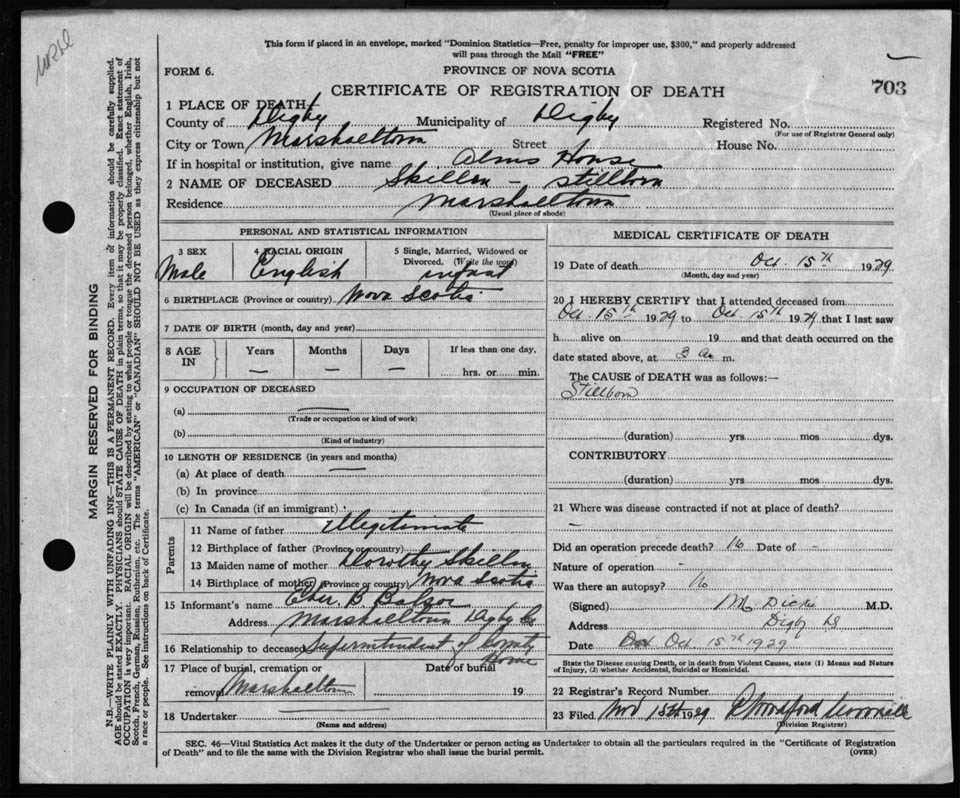 This form if placed in an envelope, marked "Dominion Statistics—Free, penalty for improper use, $300," and properly addressed
will pass through the Mail "FREE"
FORM 6.
PROVINCE OF NOVA SCOTIA
CERTIFICATE OF REGISTRATION OF DEATH
703
1 PLACE OF DEATH
County of Digby Municipality of Digby Registered No.
(For use of Registrar General only)
City or Town Marshalltown Street House No.
If in hospital or institution, give name Alms House
2 NAME OF DECEASED Skillen - Stillborn
Residence Marshalltown
(Usual place of abode)
PERSONAL AND STATISTICAL INFORMATION
3 SEX 4 RACIAL ORIGIN 5 Single, Married, Widowed or Divorced. (Write the word)
Male English infant
6 BIRTHPLACE (Province or country) Nova Scotia
7 DATE OF BIRTH (month, day and year)
8 AGE IN Years Months Days If less than one day,
— — — hrs. or min.
9 OCCUPATION OF DECEASED
(a)
(Trade or occupation or kind of work)
(b)
(Kind of industry)
10 LENGTH OF RESIDENCE (in years and months)
(a) At place of death —
(b) In province
(c) In Canada (if an immigrant)
Parents
11 Name of father Illegitimate
12 Birthplace of father (Province or country)
13 Maiden name of mother Dorothy Skillen
14 Birthplace of mother (Province or country) Nova Scotia
15 Informant's name B.
Address Marshalltown Digby Co
16 Relationship to deceased Superintendent of County Home
17 Place of burial, cremation or removal Marshalltown Date of burial 19
18 Undertaker
(Name and address)
MEDICAL CERTIFICATE OF DEATH
19 Date of death Oct. 15th 1929
(Month, day and year)
20 I HEREBY CERTIFY that I attended deceased from
Oct 15th 1929 to Oct 15th 1929 that I last saw
h alive on 19 and that death occurred on the
date stated above, at 3 a. m.
The CAUSE of DEATH was as follows:—
Stillborn
(duration) yrs mos dys.
CONTRIBUTORY
(duration) yrs mos dys.
21 Where was disease contracted if not at place of death?
—
Did an operation precede death? No Date of -
Nature of operation -
Was there an autopsy? No
(Signed) Dickie M.D.
Address Digby NS
Date Oct 15th 1929
State the Disease causing Death, or in death from Violent Causes, state (1) Means and Nature
of Injury, (2) whether Accidental, Suicidal or Homicidal.
22 Registrar's Record Number
23 Filed Nov 15th 1929
(Division Registrar)
SEC. 46—Vital Statistics Act makes it the duty of the Undertaker or person acting as Undertaker to obtain all the particulars required in the "Certificate of Registration
of Death" and to file the same with the Division Registrar who shall issue the burial permit.
(OVER)
MARGIN RESERVED FOR BINDING
N.B.—WRITE PLAINLY WITH UNFADING INK—THIS IS A PERMANENT RECORD. Every item of information should be carefully supplied.
AGE should be stated EXACTLY. PHYSICIANS should STATE CAUSE OF DEATH in plain terms, so that it may be properly classified. Exact statement of
OCCUPATION is very important. RACIAL ORIGIN will be described by stating to what people or tongue the deceased person belonged, whether English, Irish,
Scotch, French, German, Russian, Ruthenian, etc. The terms "AMERICAN" or "CANADIAN" SHOULD NOT BE USED as they express citizenship but not
a race or people. See instructions on back of Certificate.